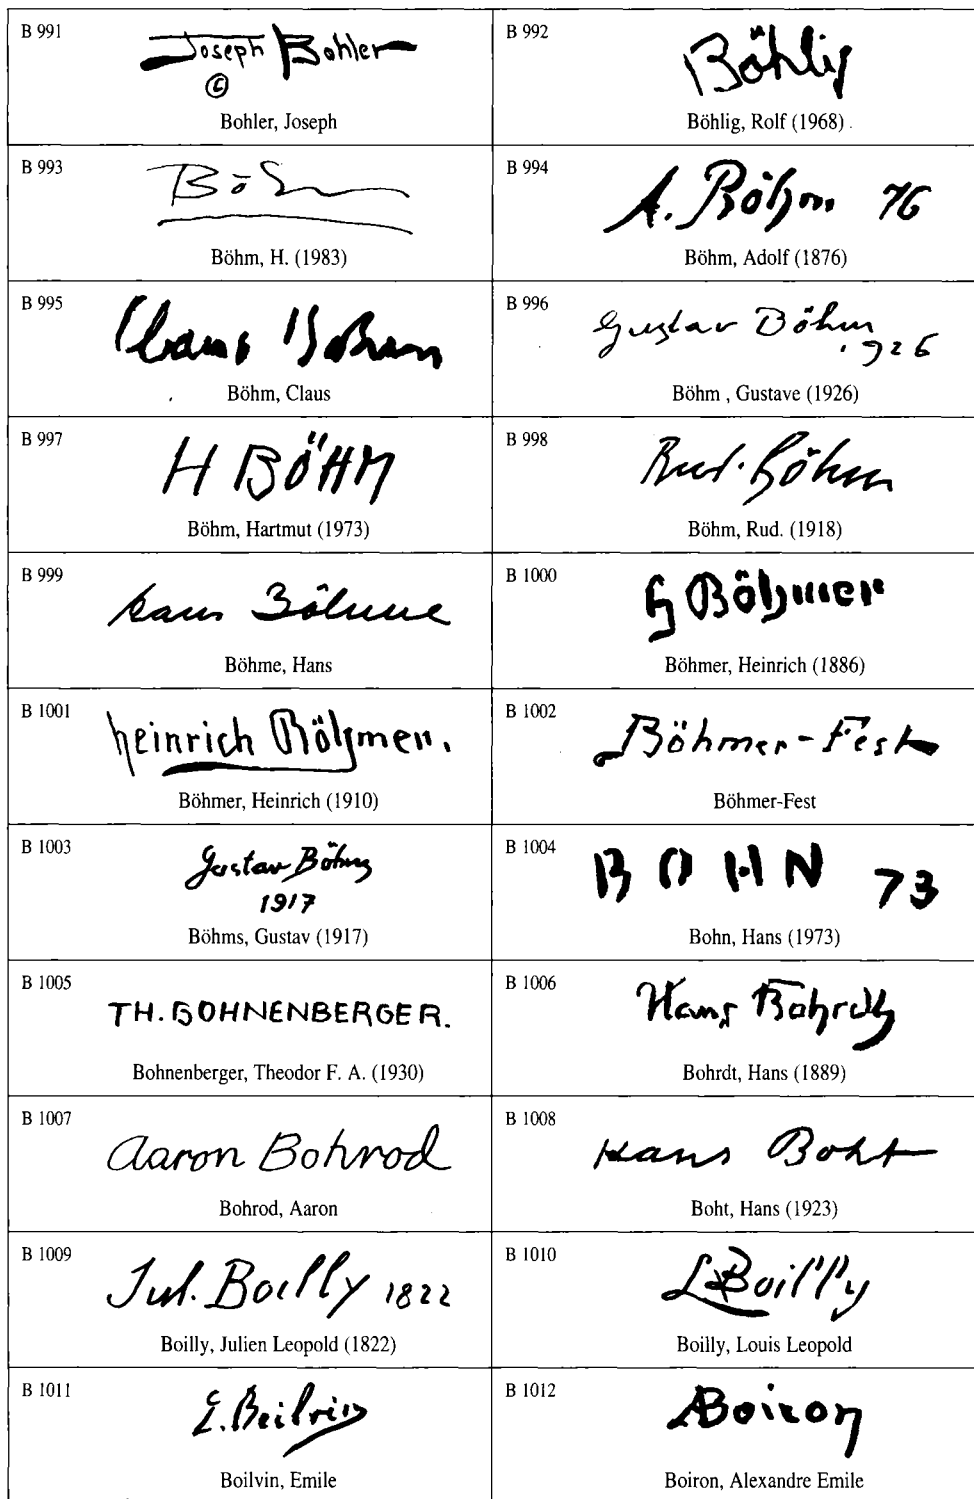 B 991
Joseph Bohler
©
Bohler, Joseph
B 992
Böhlig
Böhlig, Rolf (1968)
B 993
Böhm
Böhm, H. (1983)
B 994
A. Böhm 76
Böhm, Adolf (1876)
B 995
Claus Bohm
Böhm, Claus
B 996
Gustav Böhm
1926
Böhm , Gustave (1926)
B 997
H BÖHM
Böhm, Hartmut (1973)
B 998
Rud. Böhm
Böhm, Rud. (1918)
B 999
Hans Böhme
Böhme, Hans
B 1000
H Böhmer
Böhmer, Heinrich (1886)
B 1001
Heinrich Böhmer.
Böhmer, Heinrich (1910)
B 1002
Böhmer-Fest
Böhmer-Fest
B 1003
Gustav Böhms
1917
Böhms, Gustav (1917)
B 1004
BOHN 73
Bohn, Hans (1973)
B 1005
TH. BOHNENBERGER.
Bohnenberger, Theodor F. A. (1930)
B 1006
Hans Bohrdt
Bohrdt, Hans (1889)
B 1007
Aaron Bohrod
Bohrod, Aaron
B 1008
Hans Boht
Boht, Hans (1923)
B 1009
Jul. Boilly 1822
Boilly, Julien Leopold (1822)
B 1010
L Boilly
Boilly, Louis Leopold
B 1011
E. Boilvin
Boilvin, Emile
B 1012
ABoiron
Boiron, Alexandre Emile